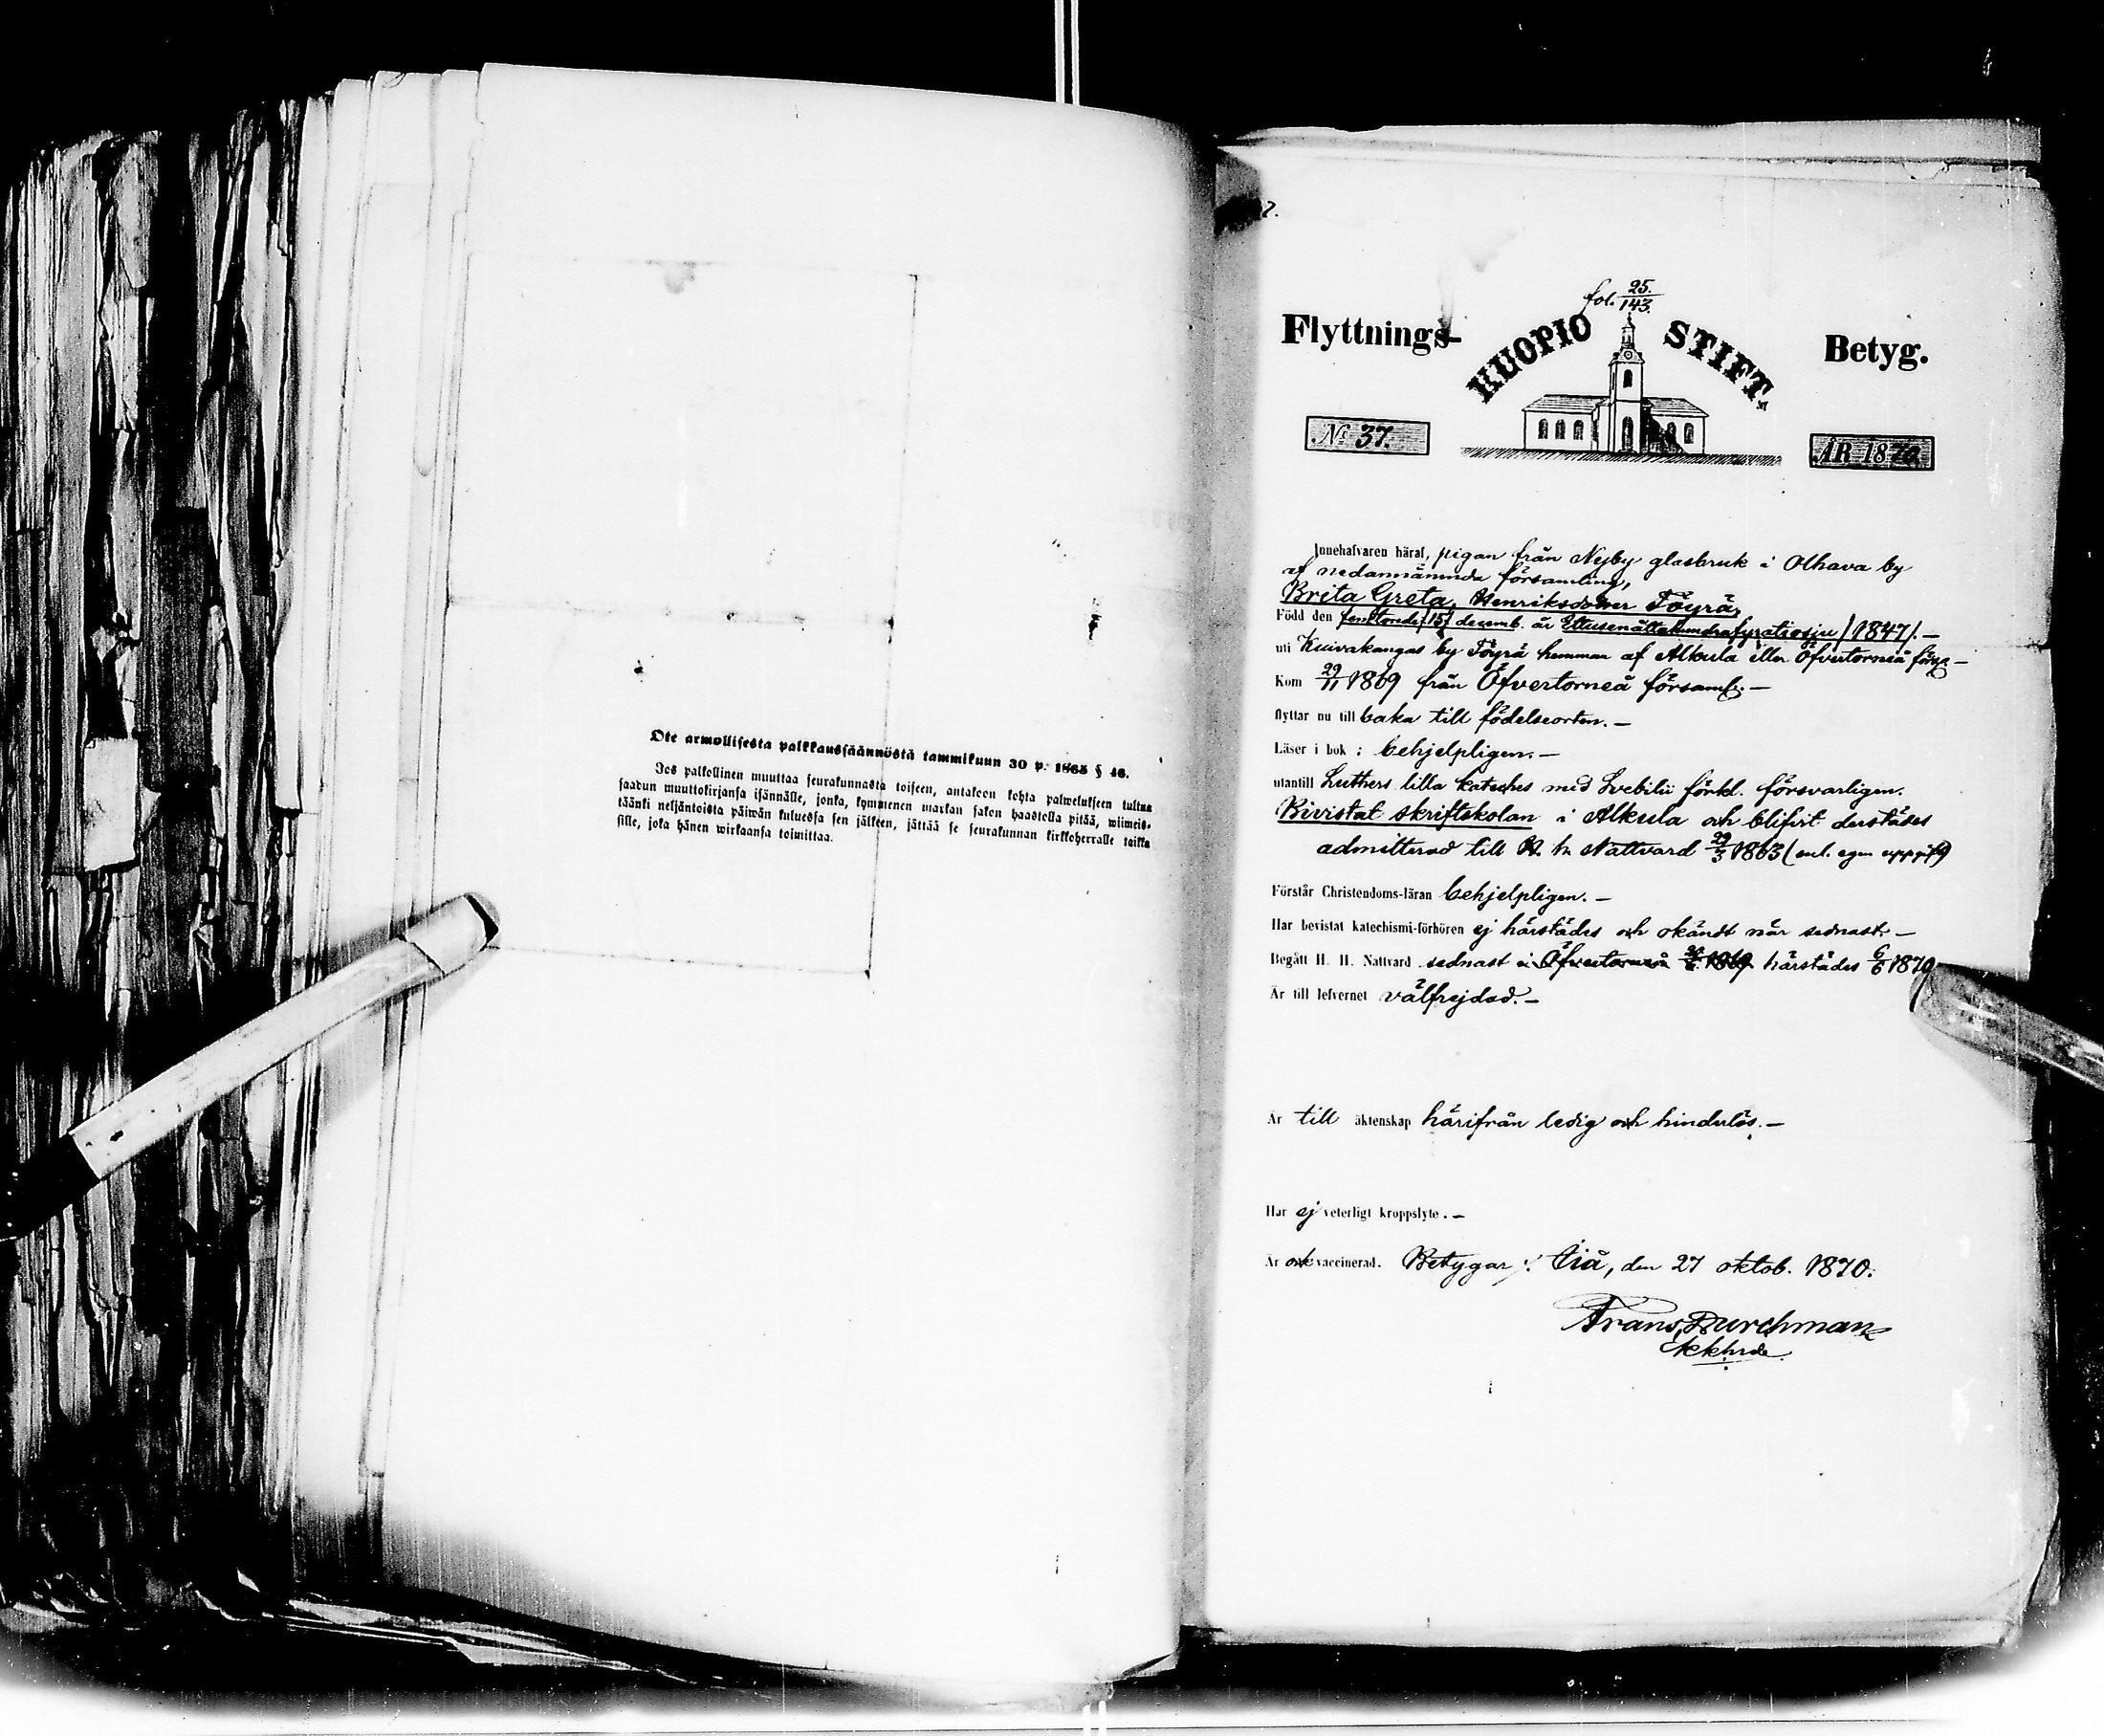 Ote armollisesta palkkaussäännöstä tammikuun 30 p. 1865 § 46.
Jos palkollinen muuttaa seurakunnasta toiseen, antakoon kohta palwelukseen tultua
saadun muuttokirjansa isännälle, jonka, kymmenen markan sakon haastolla pitää, wiimeis-
täänki neljäntoista päiwän kuluessa sen jälkeen, jättää se seurakunnan kirkkoherralle taikka
sille, joka hänen wirkaansa toimittaa.
7.
fol. 25./143.
Flyttnings- KUOPIO STIFT. Betyg.
No 37. ÅR 1870.
Innehafvaren häraf, pigan från Nyby glasbruk i Olhava by
af nedannämnda församling,
Brita Greta, Henriksdotter Töyrä,
Född den femtonde /15/ decemb. år Ettusenåttahundrafyratiosju /1847/. —
uti Kuivakangas by Töyrä hemman af Alkula eller Öfvertorneå förs. —
Kom 29/11 1869 från Öfvertorneå församl. —
flyttar nu till baka till födelseorten. —
Läser i bok : behjelpligen. —
utantill Luthers lilla kateches med Svebilii förkl. försvarligen.
Bivistat skriftskolan i Alkula och blifvit derstädes
admitterad till H. h. Nattvard 29/3 1863 (enl. egen uppgift)
Förstår Christendoms-läran behjelpligen. —
Har bevistat katechismi-förhören ej härstädes och okändt när sednast. —
Begått H. H. Nattvard sednast i Öfvertorneå 1869 härstädes 6/6 1870
Är till lefvernet välfrejdad. —
Är till äktenskap härifrån ledig och hinderlös. —
Har ej veterligt kroppslyte. —
Är ock vaccinerad. Betygar : Iiå, den 27 oktob. 1870.
Frans Durchman